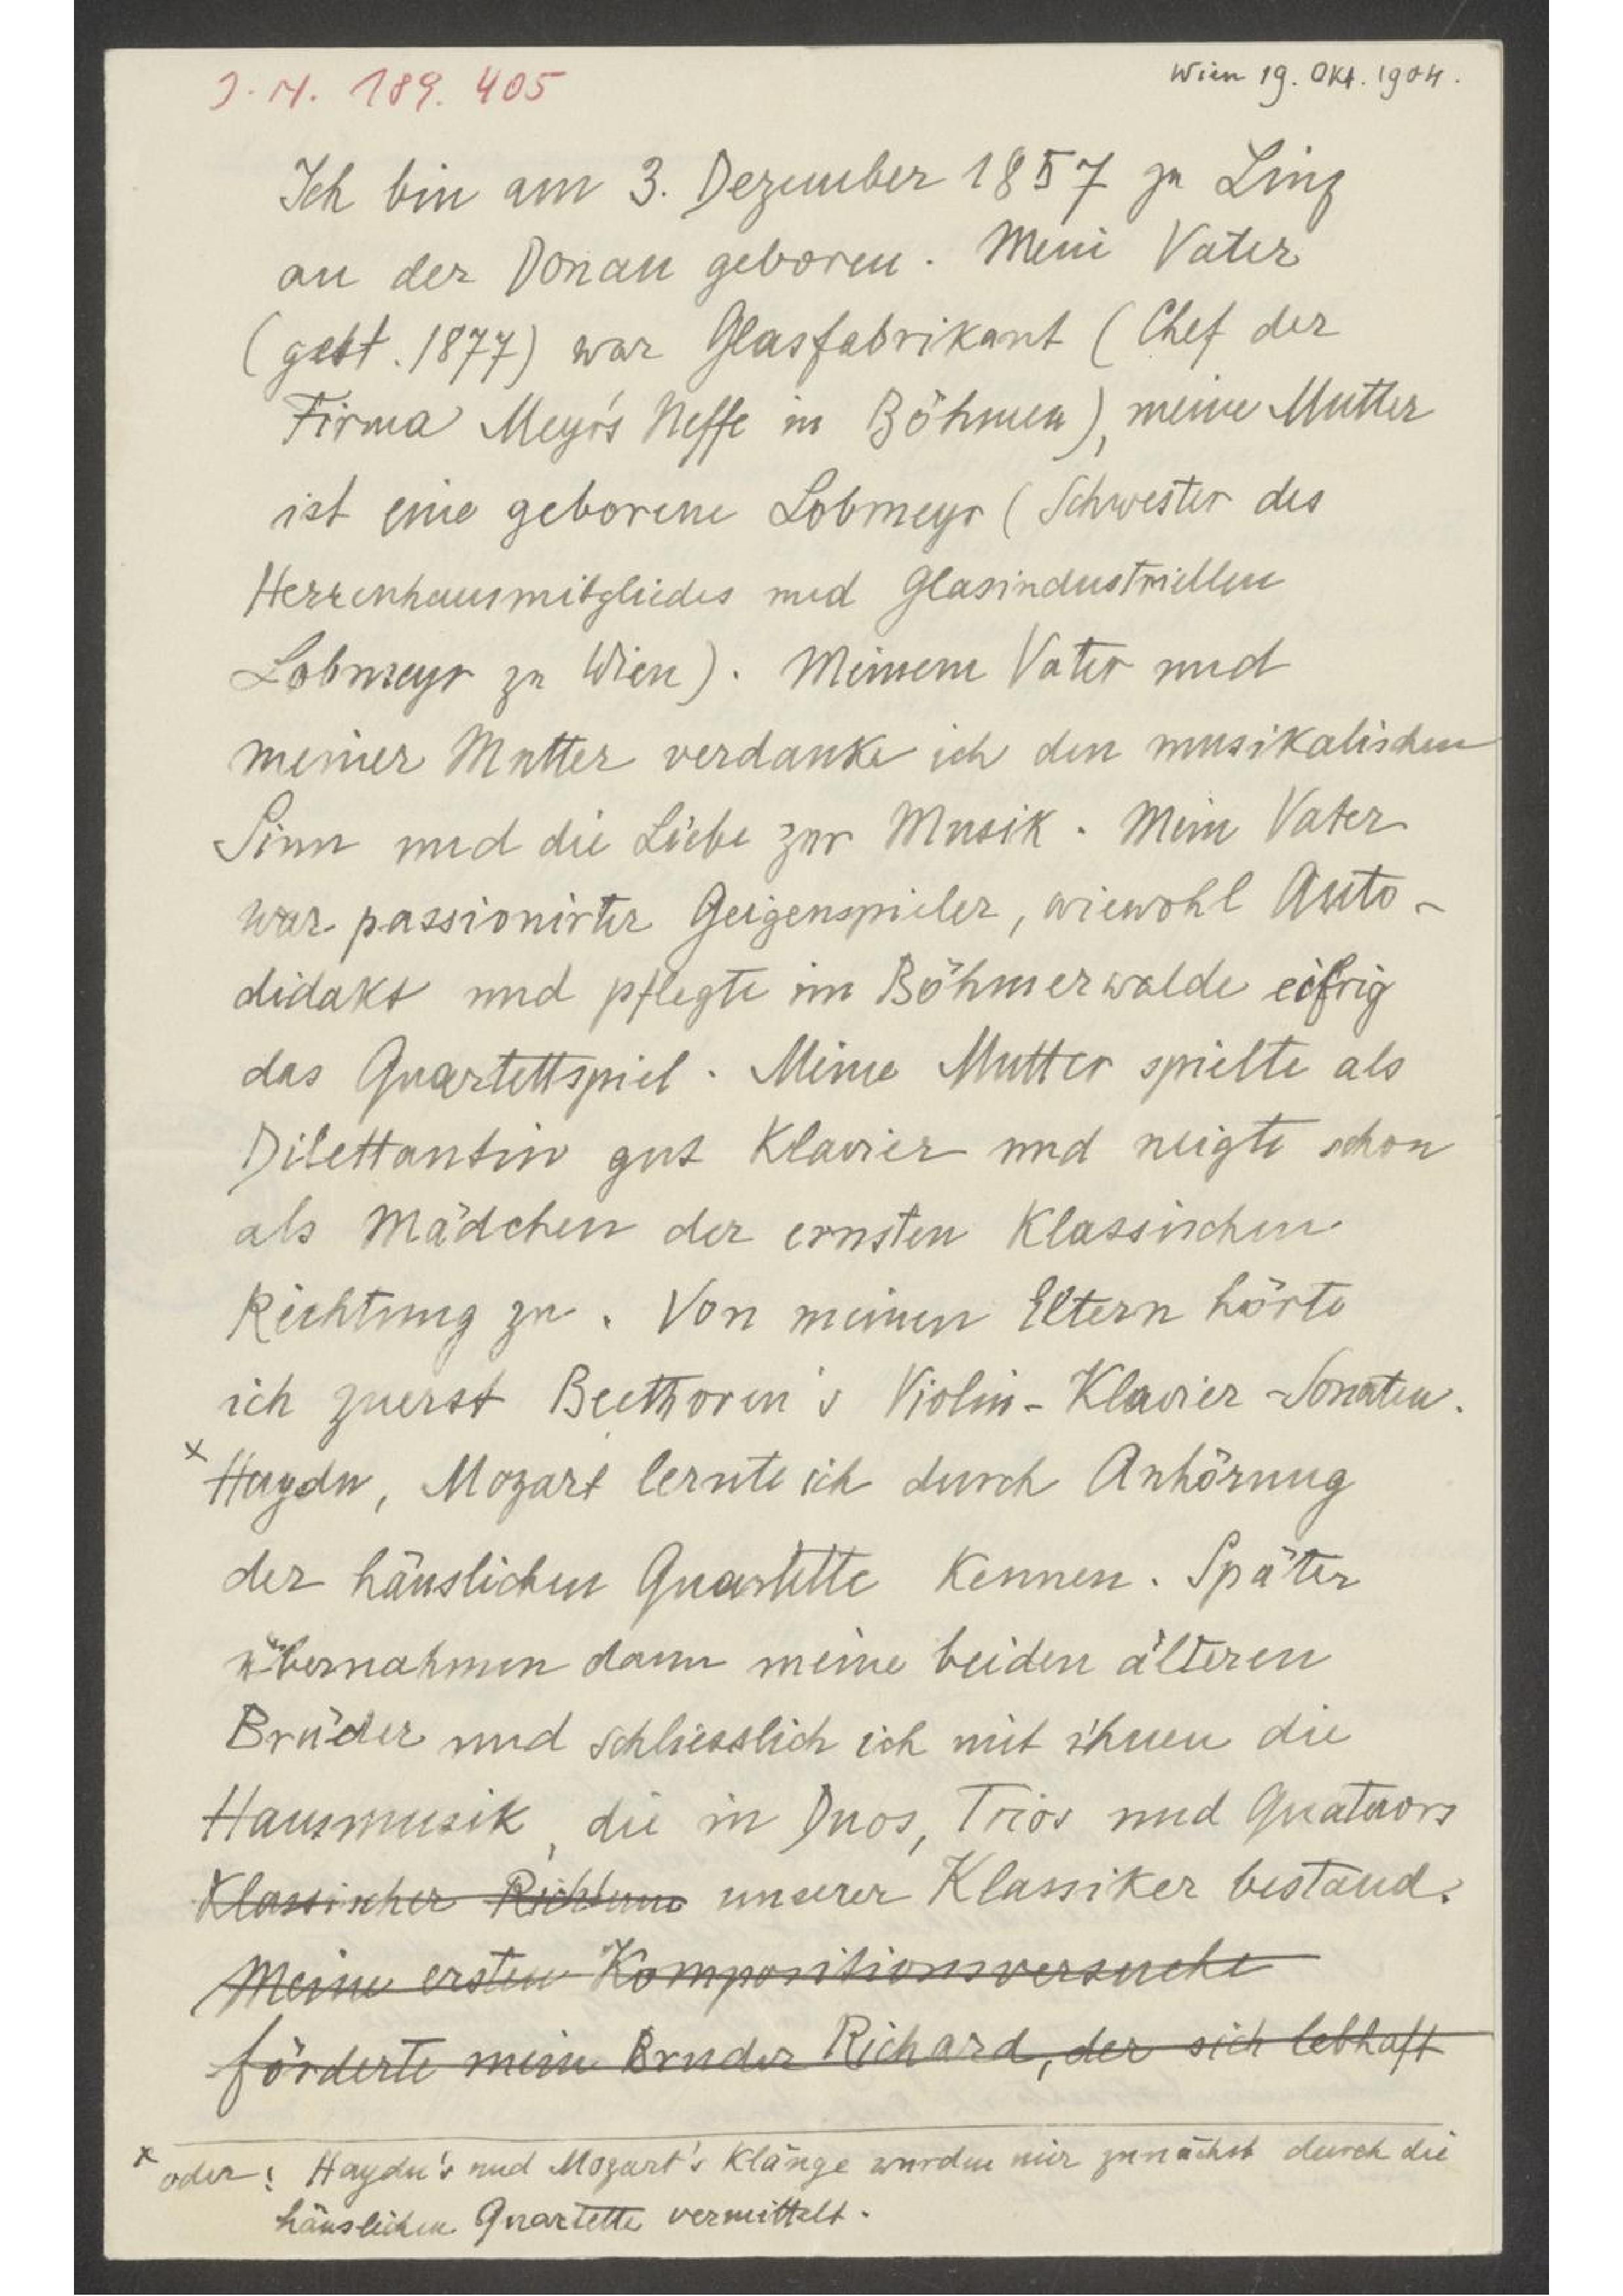 J. N. 189. 405
Wien 19. Okt. 1904.
Ich bin am 3. Dezember 1857 zu Linz
an der Donau geboren. Mein Vater
(gest. 1877) war Glasfabrikant (Chef der
Firma Meyr's Neffe in Böhmen), meine Mutter
ist eine geborene Lobmeyr (Schwester des
Herrenhausmitgliedes und Glasindustriellen
Lobmeyr zu Wien). Meinem Vater und
meiner Mutter verdanke ich den musikalischen
Sinn und die Liebe zur Musik. Mein Vater
war passionirter Geigenspieler, wiewohl Auto-
didakt und pflegte im Böhmerwalde eifrig
das Quartettspiel. Meine Mutter spielte als
Dilettantin gut Klavier und neigte schon
als Mädchen der ernsten klassischen
Richtung zu. Von meinen Eltern hörte
ich zuerst Beethoven's Violin-Klavier-Sonaten.
x Haydn, Mozart lernte ich durch Anhörung
der häuslichen Quartette kennen. Später
übernahmen dann meine beiden älteren
Brüder und schliesslich ich mit ihnen die
Hausmusik, die in Duos, Trios und Quatuors
Klassischer Richtung unserer Klassiker bestand.
Meine ersten Kompositionsversuche
förderte mein Bruder Richard, der sich lebhaft
x oder: Haydn's und Mozart's Klänge wurden mir zunächst durch die
häuslichen Quartette vermittelt.